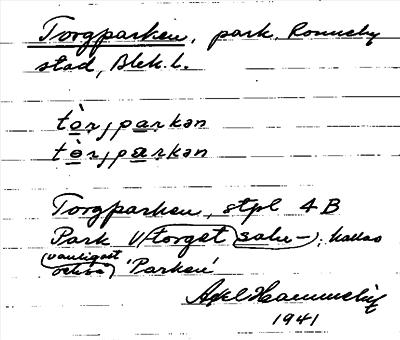 Torgparken, park, Ronneby
stad, Blek. l.
tòrjparkən
tòrjparkən
Torgparken, stpl 4 B
Park v/torget (salu-); kallas
(vanligast
också) 'Parken'
Axel
1941